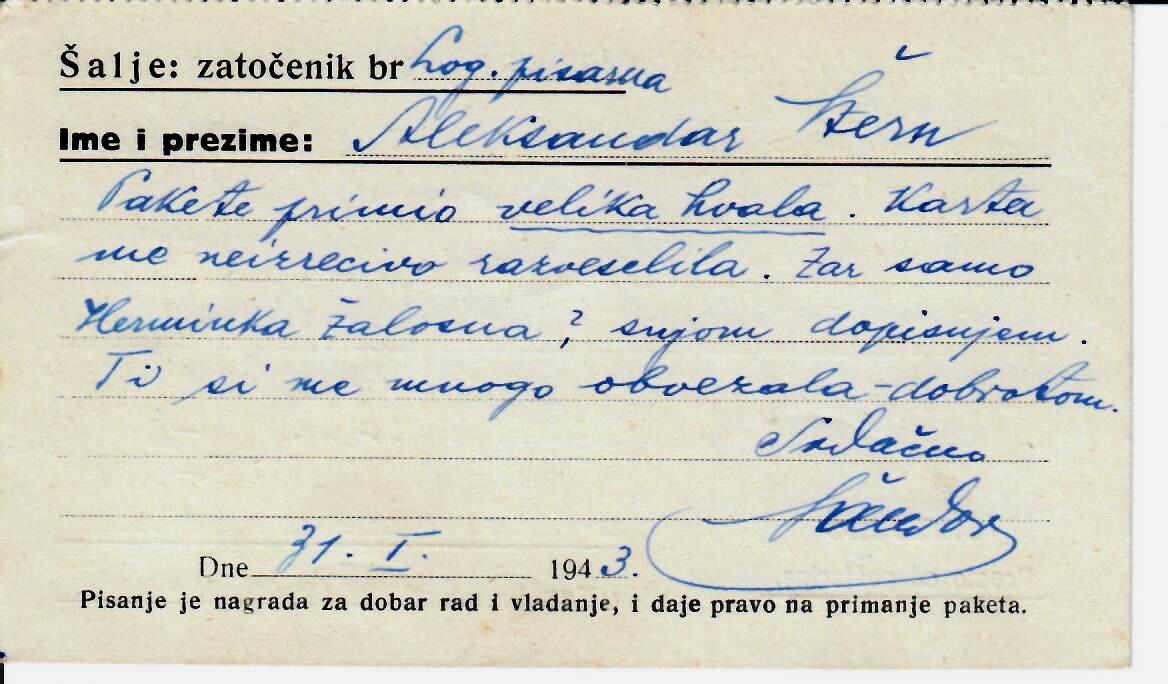 Šalje: zatočenik br Log. pisarna
Ime i prezime: Aleksandar Štern
Pakete primio velika hvala. Karta
me neizrecivo razveselila. Zar samo
Herminka žalosna, ? snjom dopisujem.
Ti si me mnogo obvezala-dobrotom.
Srdačno
Šandor
Dne 31. I. 1943.
Pisanje je nagrada za dobar rad i vladanje, i daje pravo na primanje paketa.